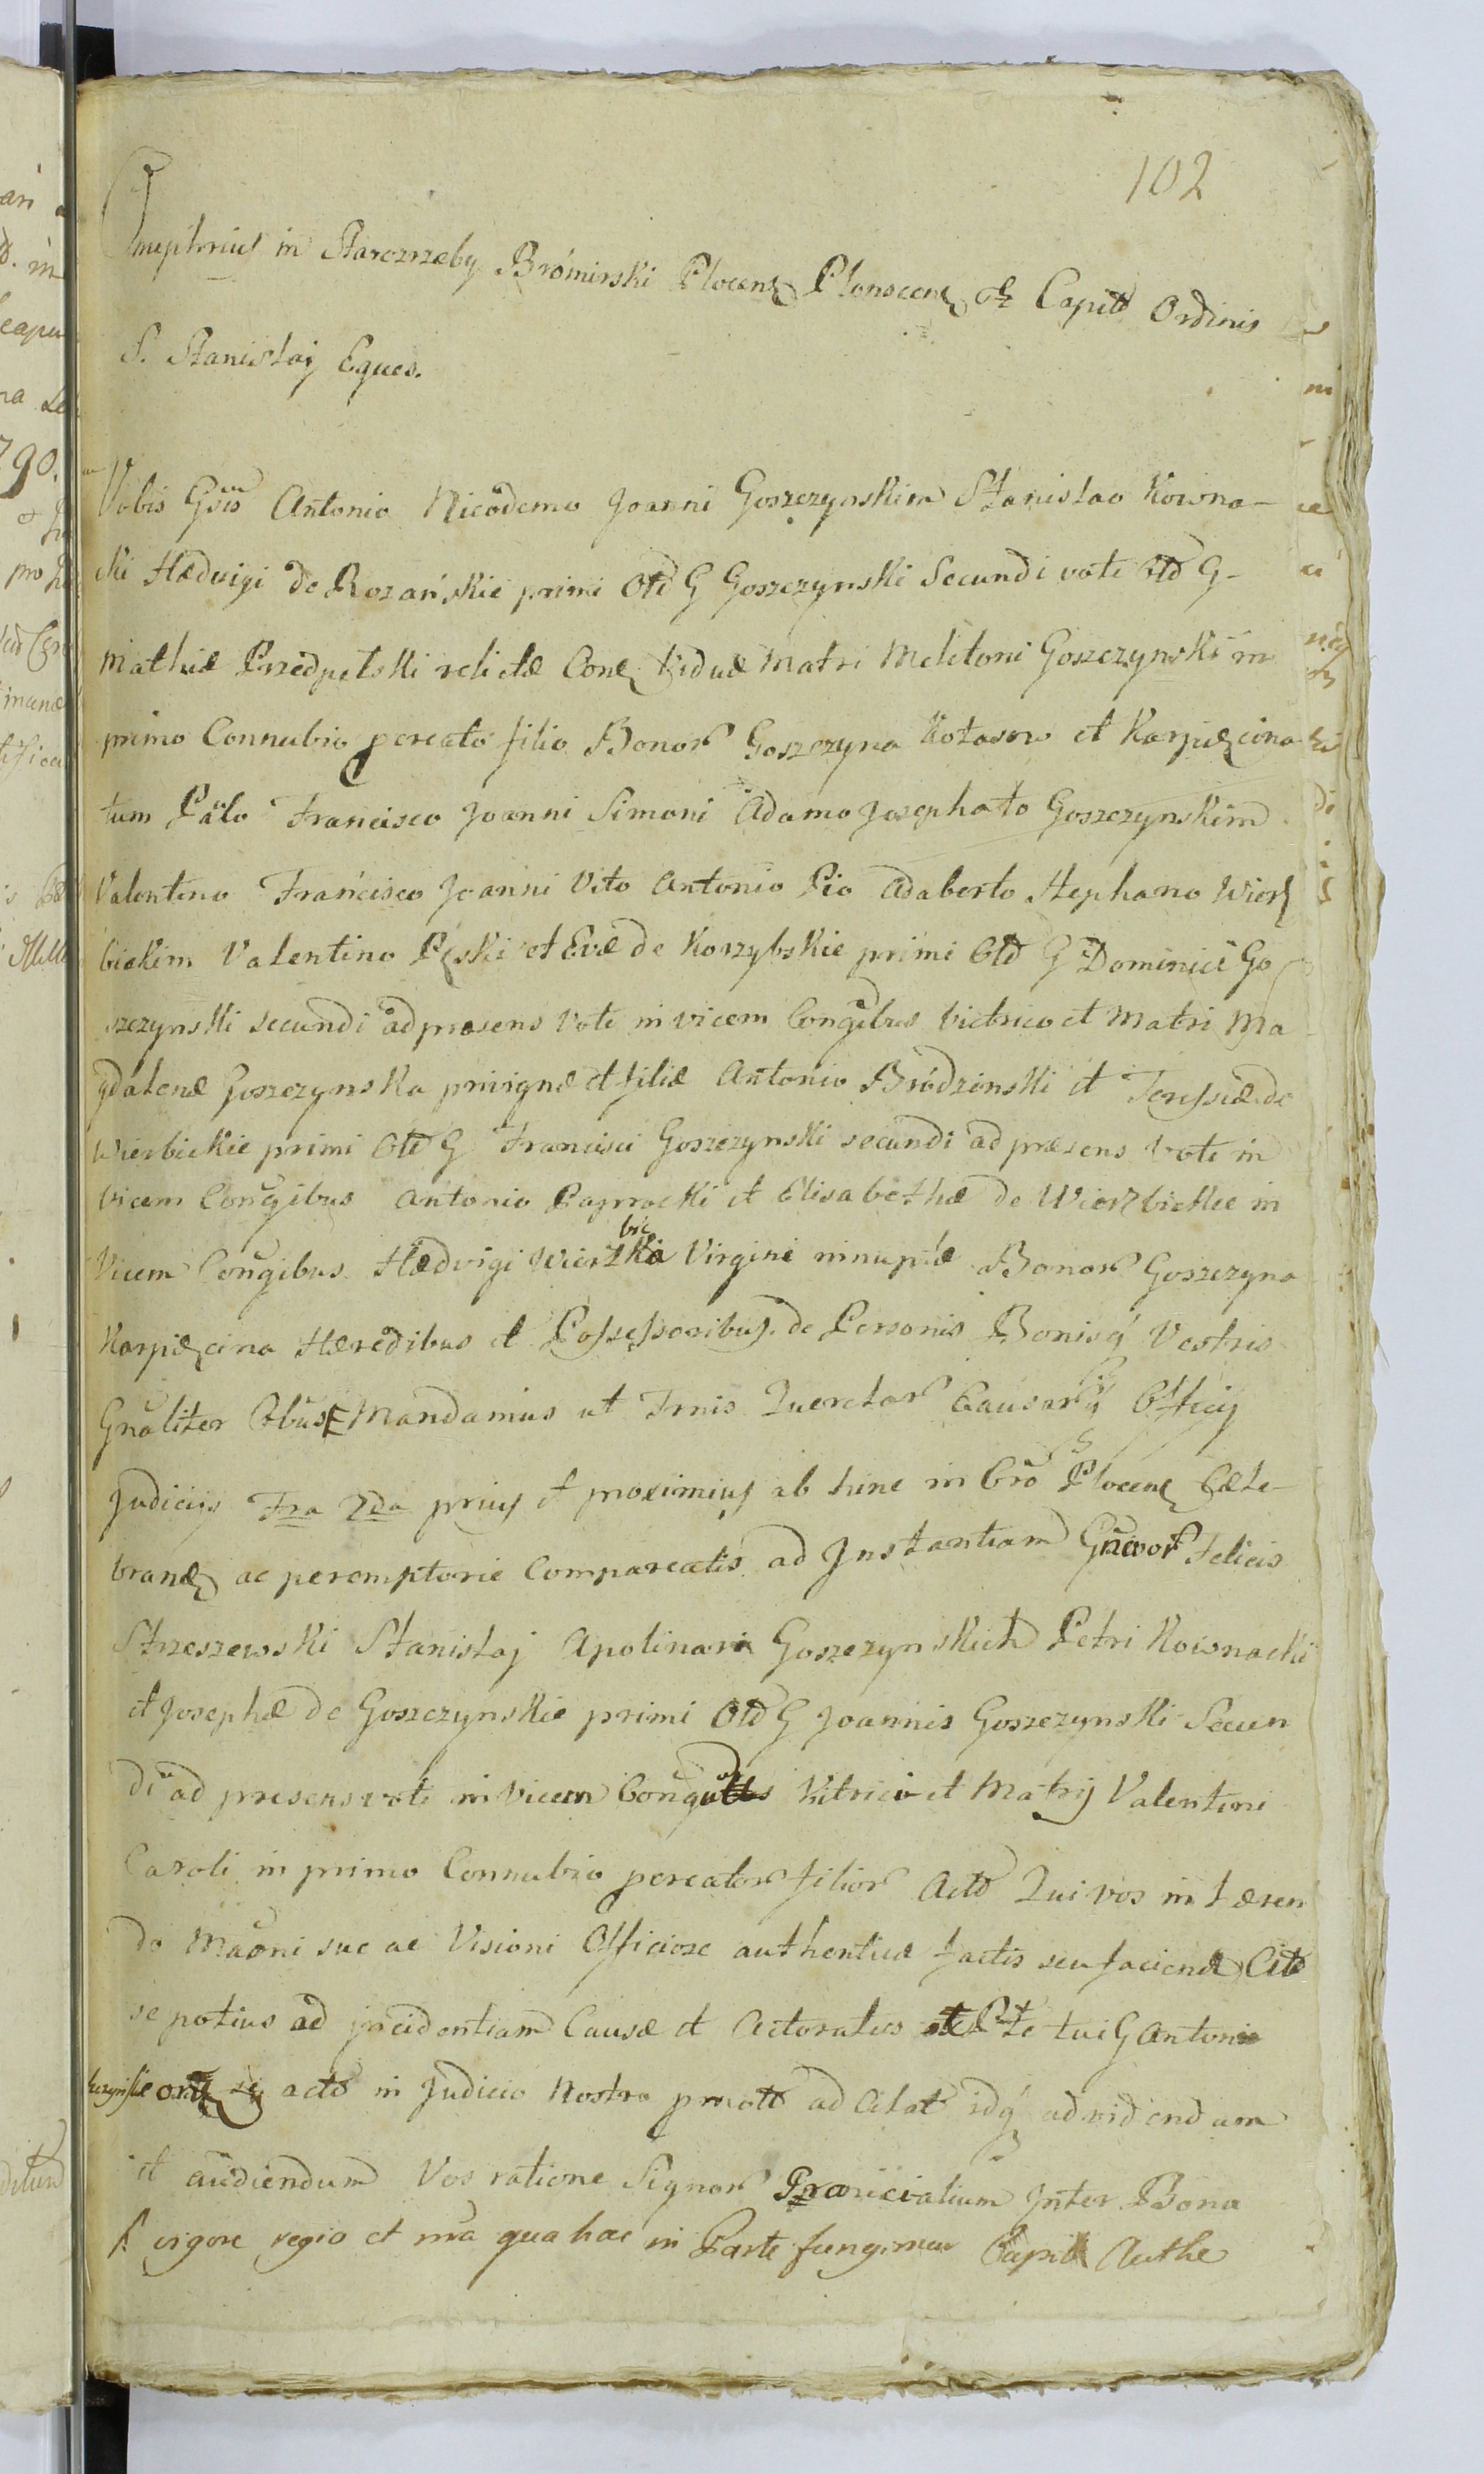 102
Onuphrius in Starozrzeby Brómirski Plocens Plonscens &c Capitt Ordinis
S. Stanislaj Eques.
Vobis Gsis Antonio Nicodemo Joanni Goszczynskim Stanislao Kowna-
cki Hædvigi de Rozańskie primi Old G Goszczynski Secundi voti Old G-
Mathiæ Przedpełski relictæ Cons Viduæ Matri Melitoni Goszczynski in
primo Connubio pcreato filio Bonor Goszczyna Kołasow et Karpięcina
tum Pālo Francisco Joanni Simoni Adamo Josephato Goszczynskim
Valentino Francisco Joanni Vito Antonio Pio Adaberto Stephano Wierz
bickim Valentino Pęski et Evæ de Korzybskie primi Old G Dominici Go
szczynski secundi ad præsens Voti in vicem Congibus Victrico et Matri Ma
gdalenæ Goszczynska privignæ et filiæ Antonio Bródzinski et Teressiæ de
Wierbickie primi Old G Francisci Goszczynski secundi ad præsens Voti in
vicem Congibus Antonio Paprocki et Elisabethæ de Wierzbickie in
Vicem Congibus Hædvigi Wierzbicka Virgini innuptæ Bonor Goszczyna
Karpięcina Hæredibus et Possessoribus de Personis Bonisq Vestris
Gnāliter Obus Mandamus ut Trnis Querelar Causarq Officij
Judicijs Fra 2da prius et proximius ab hinc in Cro Plocens Cæle-
brand ac peremptorie Compareatis ad Instantiam Gnēror Felicis
Strzeszewski Stanislaj Apolinari Goszczynskich Petri Kownacki
et Josephæ de Goszczynskie primi Old G Joannis Goszczynski Secun
di ad presens voti in vicem Congum Vitrici et Matrij Valentini
Caroli in primo Connubio pcreator filior Actō Qui vos in hæren
do Maōni suæ ac Visioni Officiose authenticæ factis seu faciend Citō
se potius ad jncidentiam Causæ et Actoratus Pte tui G Antoni
szczynskie se actō in Judicio Nostro ad Citat idq ad videndum
et audiendum Vos ratione Signor Graniciatium Jnter Bona
vigore regio et mā qua hac in Parte fungimur Capitt Authe